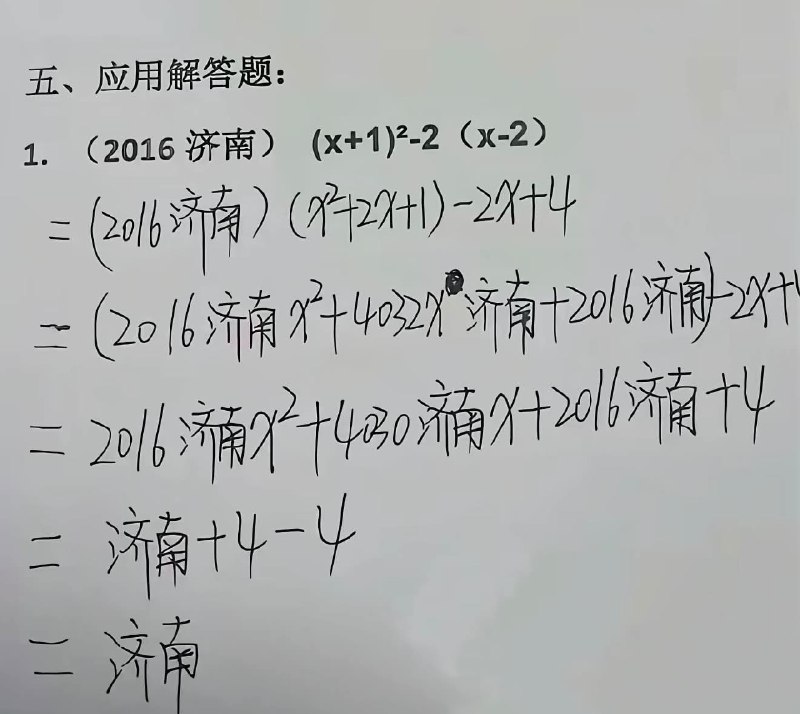 五、应用解答题：
1. （2016 济南） (x+1)²-2（x-2）
= (2016济南) (x²+2x+1)-2x+4
= (2016济南x²+4032x济南+2016济南)-2x+4
= 2016济南x²+4030济南x+2016济南+4
= 济南+4-4
= 济南